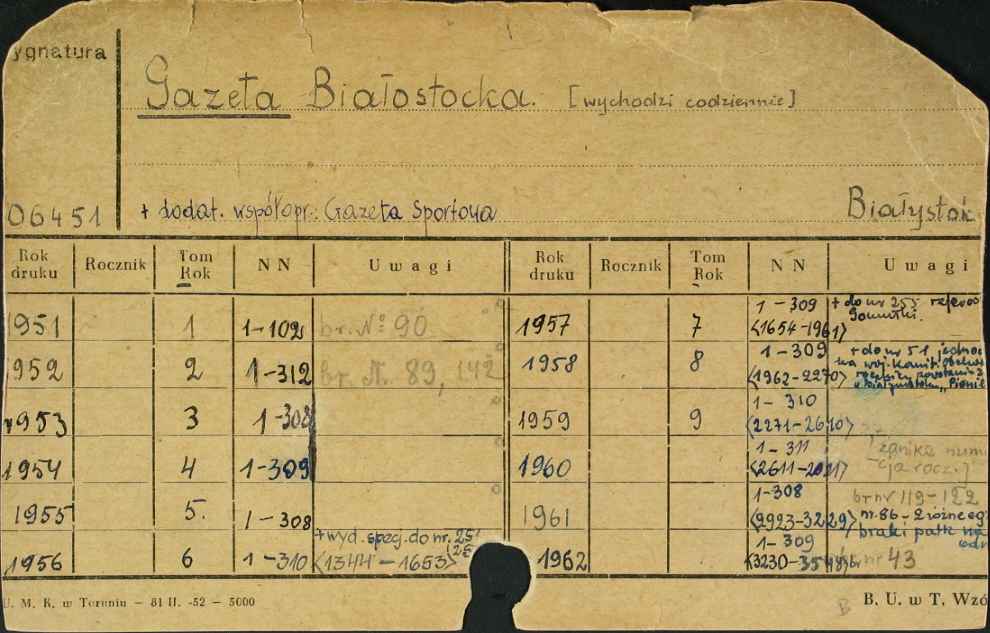 ygnatura
Gazeta Białostocka. [wychodzi codziennie]
06451 + dodat. współopr.: Gazeta Sportowa Białystok
Rok druku Rocznik Tom Rok NN Uwagi Rok druku Rocznik Tom Rok NN Uwagi
1951 1 1-102 br. № 90
952 2 1-312 br. N. 89, 142
1953 3 1-308
1954 4 1-309
1955 5. 1-308
+wyd. specj. do nr. 25
1956 6 1-310 <1344-1653>
1957 7 1-309 + do nr 255
<1654-1961> Gomułki.
1958 8 1-309 + do nr 51
<1962-2270>
1959 9 1-310
<2271-2610>
1960 1-311 [zanika
<2611-
1961 1-308 br nr 119-122
nr. 86 - 2 różne
braki
1962 1-309
<3230- nr 43
U. M. K. w Toruniu — 81 II. -52 — 5000 B B. U. w T. Wzó